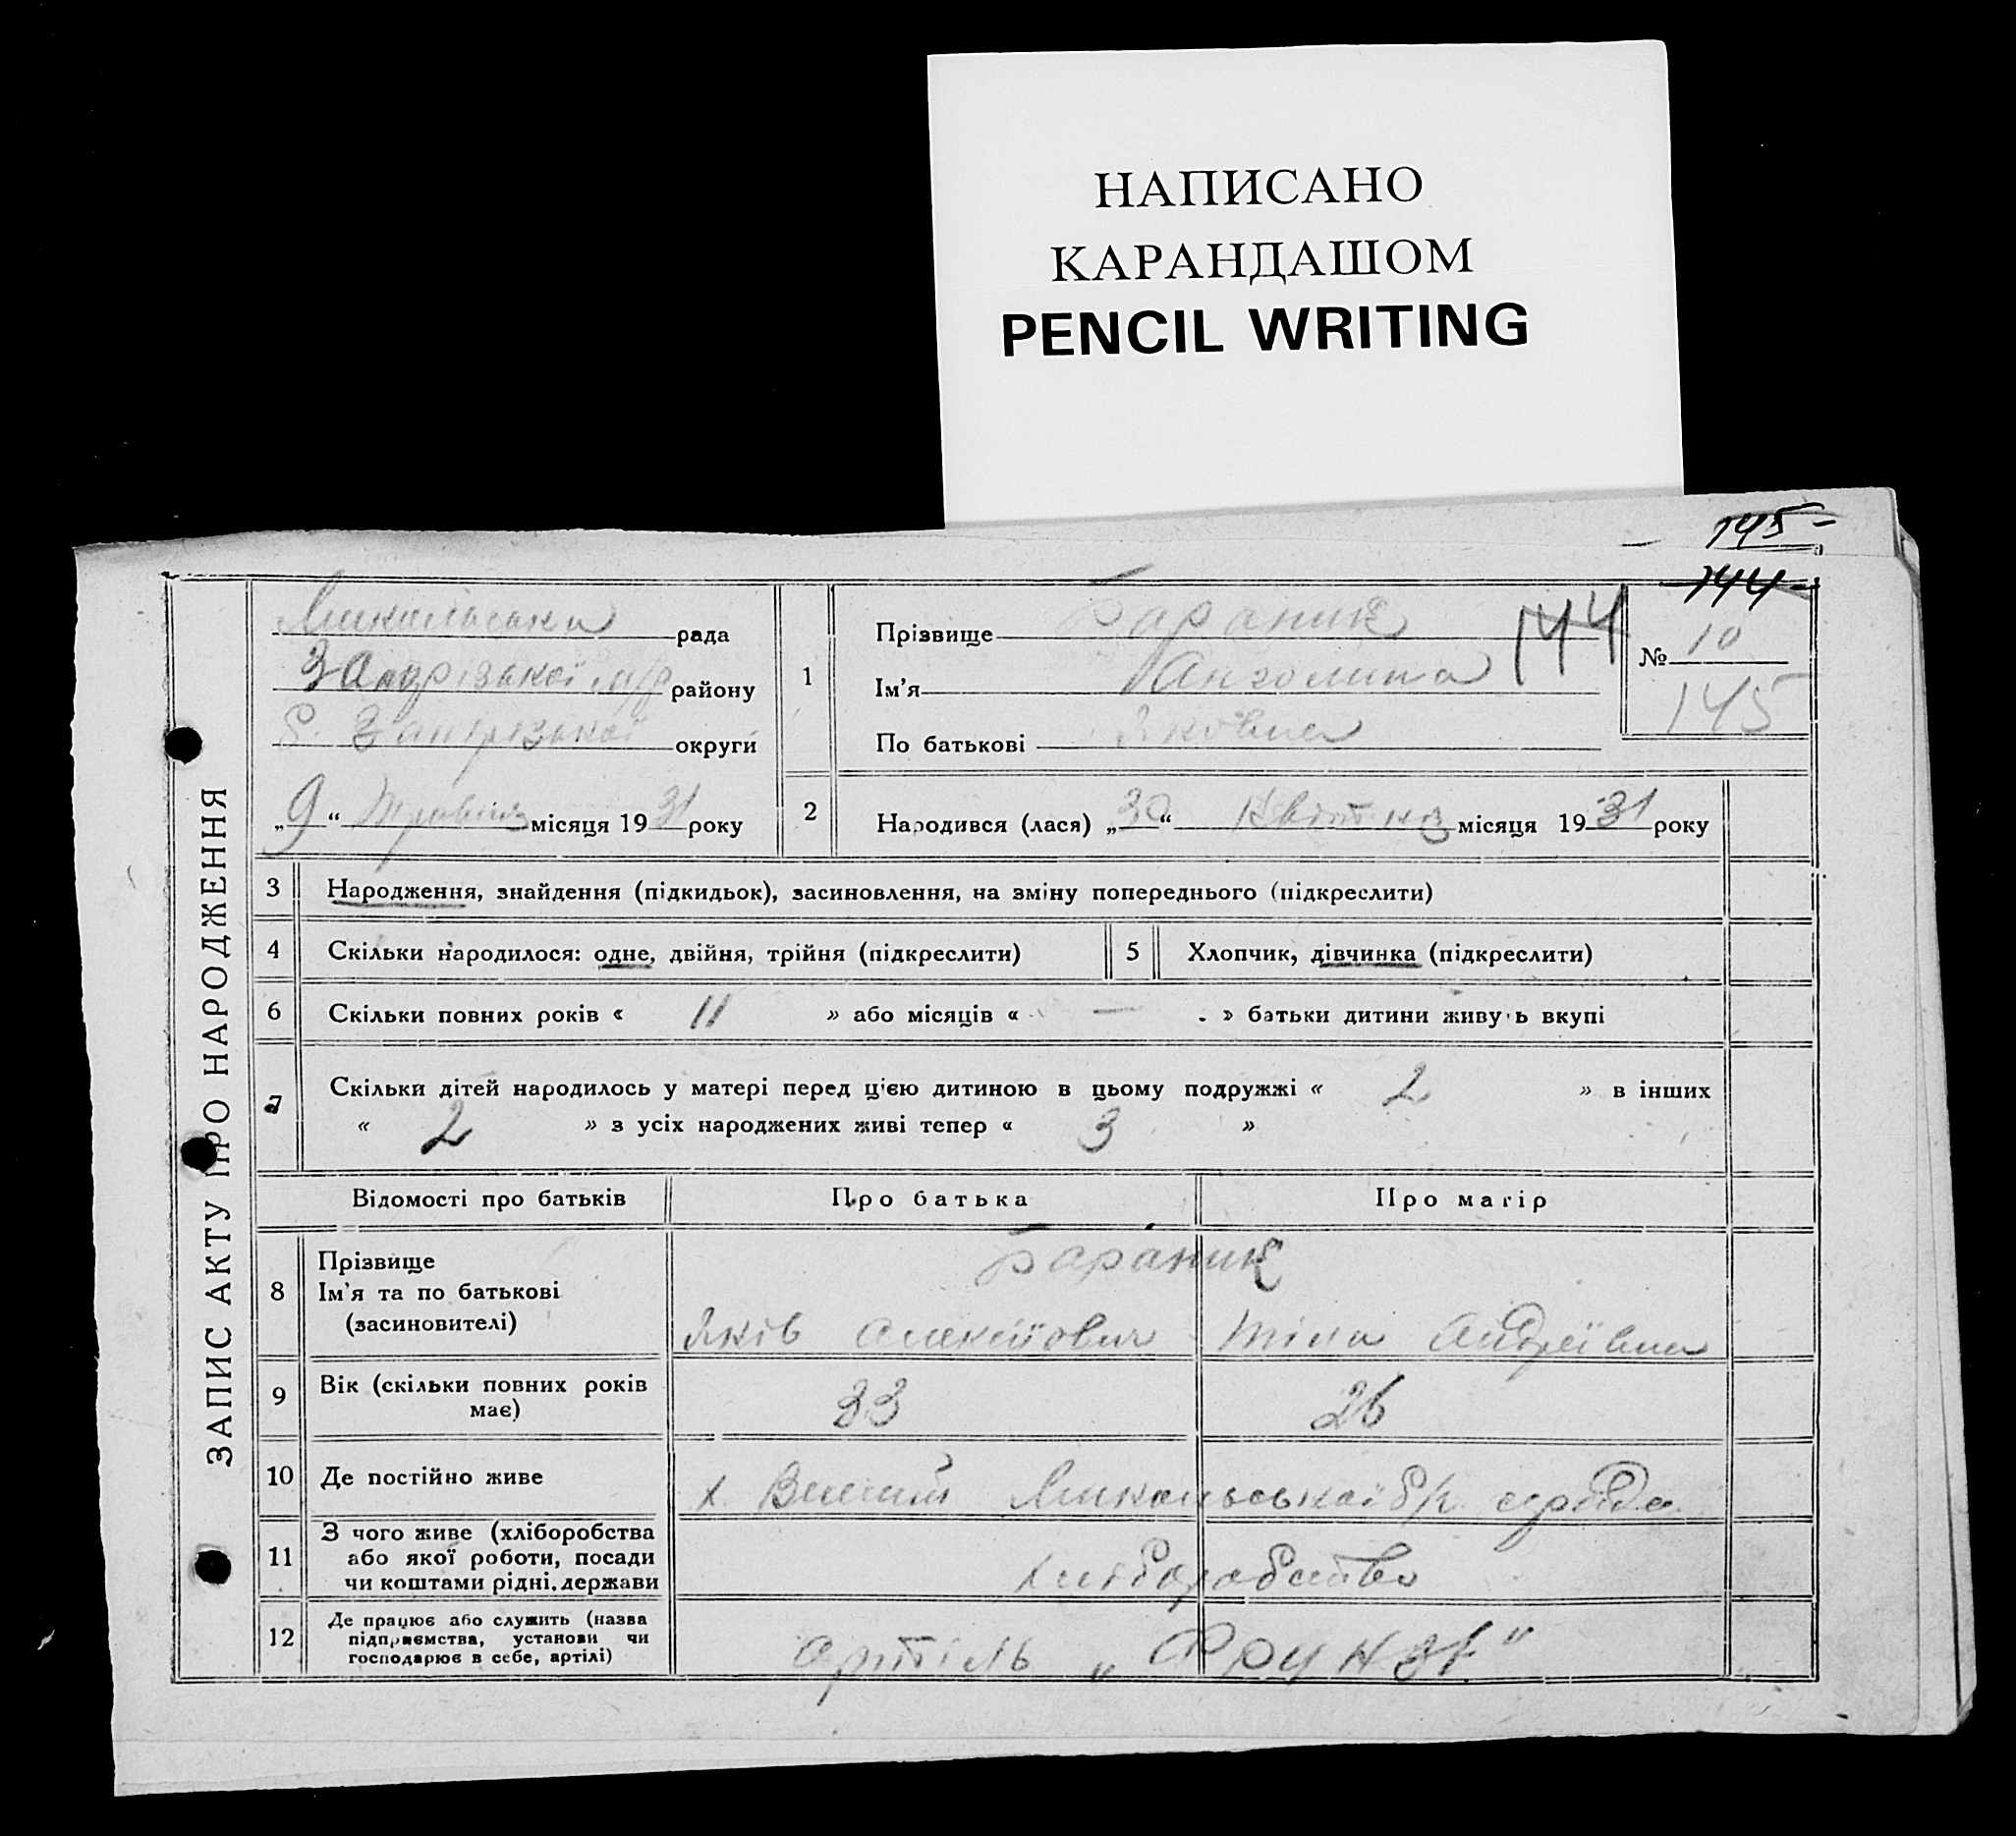 НАПИСАНО
КАРАНДАШОМ
PENCIL WRITING
145
144
ЗАПИС АКТУ ПРО НАРОДЖЕННЯ
Микільська рада
Запорізької м/р району
б. Запорізької округи
„9“ травня місяця 1931 року
1
Прізвище Бараник 144
Ім'я
По батькові Яковна
№ 10
145
2 Народився (лася) „30“ квітня місяця 1931 року
3 Народження, знайдення (підкидьок), засиновлення, на зміну попереднього (підкреслити)
4 Скільки народилося: одне, двійня, трійня (підкреслити) 5 Хлопчик, дівчинка (підкреслити)
6 Скільки повних років « 11 » або місяців « — » батьки дитини живуть вкупі
7 Скільки дітей народилось у матері перед цією дитиною в цьому подружжі « 2 » в інших
« 2 » з усіх народжених живі тепер « 3 »
Відомості про батьків Про батька Про матір
8 Прізвище Бараник
Ім'я та по батькові
(засиновителі) Яків Олексійович Тіна Андріївна
9 Вік (скільки повних років
має) 33 26
10 Де постійно живе х. Микольської
11 З чого живе (хліборобства
або якої роботи, посади
чи коштами рідні, держави Хліборобство
12 Де працює або служить (назва
підприємства, установи чи
господарює в себе, артілі) артіль „Фрунзе"